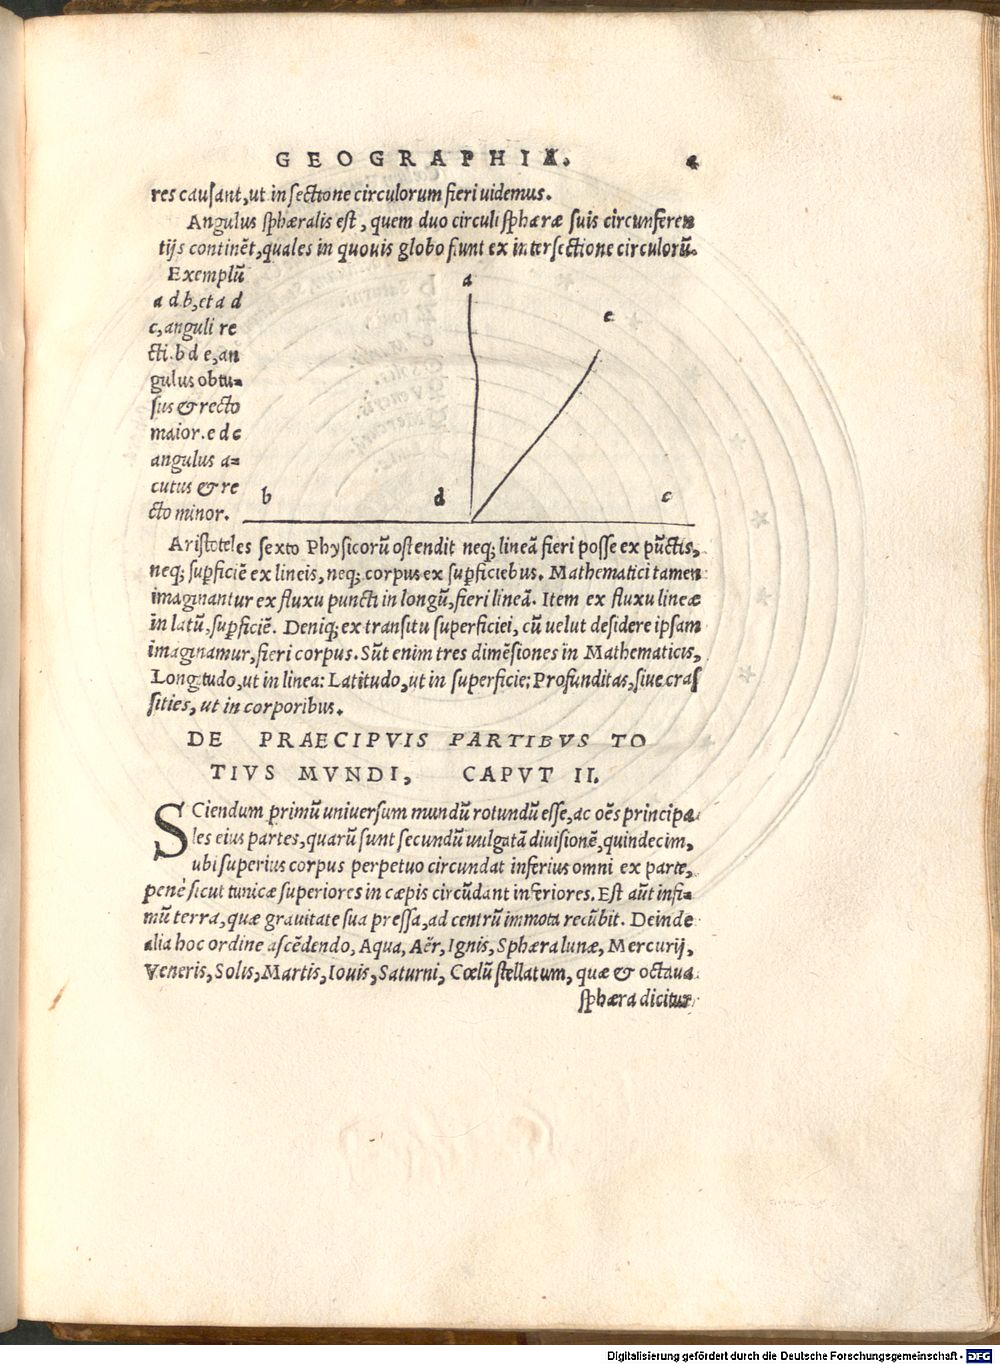 GEOGRAPHIA. 4
res causant, ut in sectione circulorum fieri uidemus.
Angulus sphæralis est, quem duo circuli sphæræ suis circunferen
tijs continēt, quales in quouis globo fiunt ex intersectione circulorū.
Exemplū
a d b, et a d
c, anguli re
cti. b d e, an
gulus obtu=
sus & recto
maior. e d c
angulus a=
cutus & re
cto minor.
a
e
b
d
c
Aristoteles sexto Physicorū ostendit neq; lineā fieri posse ex pūctis,
neq; supficiē ex lineis, neq; corpus ex supficiebus. Mathematici tamen
imaginantur ex fluxu puncti in longū, fieri lineā. Item ex fluxu lineæ
in latū, supficiē. Deniq; ex transitu superficiei, cū uelut desidere ipsam
imaginamur, fieri corpus. Sūt enim tres dimēsiones in Mathematicis,
Longitudo, ut in linea: Latitudo, ut in superficie: Profunditas, siue cras
sities, ut in corporibus.
DE PRAECIPVIS PARTIBVS TO
TIVS MVNDI, CAPVT II.
SCiendum primū uniuersum mundū rotundū esse, ac oēs principa
les eius partes, quarū sunt secundū uulgatā diuisionē, quindecim,
ubi superius corpus perpetuo circundat inferius omni ex parte,
penè sicut tunicæ superiores in cæpis circūdant inferiores. Est aūt infi=
mū terra, quæ grauitate sua pressa, ad centrū immota recūbit. Deinde
alia hoc ordine ascēdendo, Aqua, Aër, Ignis, Sphæra lunæ, Mercurij,
Veneris, Solis, Martis, Iouis, Saturni, Cœlū stellatum, quæ & octaua
sphæra dicitur
Digitalisierung gefördert durch die Deutsche Forschungsgemeinschaft - DFG